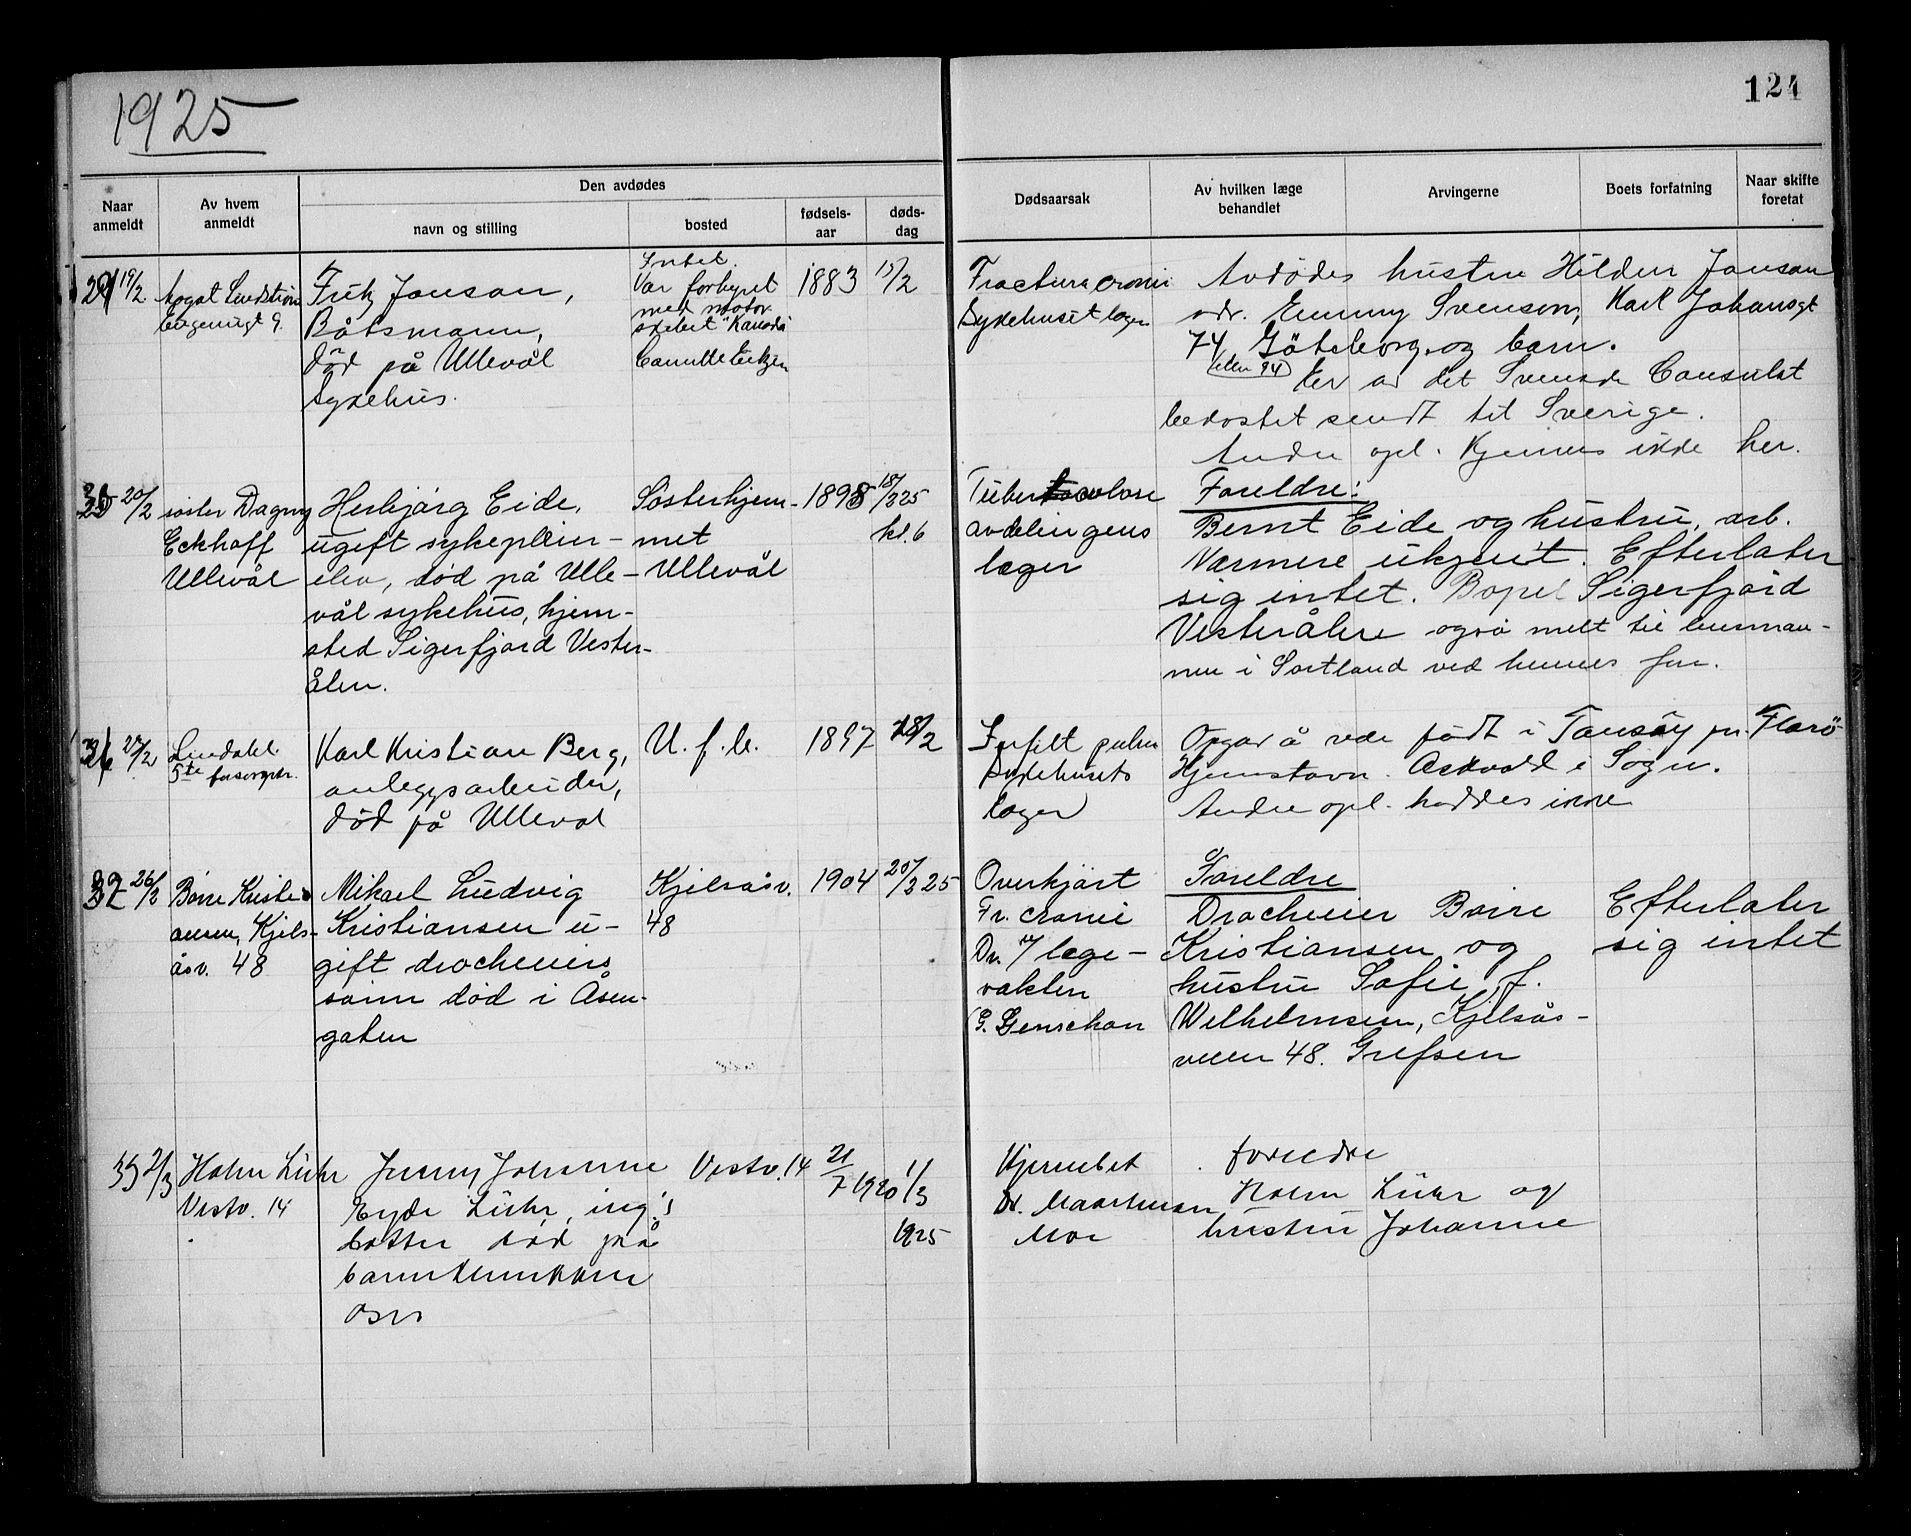 1925
124
Den avdødes
Naar anmeldt
Av hvem anmeldt
navn og stilling
bosted
fødselsaar
dødsdag
Dødsaarsak
Av hvilken læge behandlet
Arvingerne
Boets forfatning
Naar skifte foretat
19/2
Fritz Jonson,
Båtsmann,
död på Ullevål
Sykehus.
Intet.
Var forhyret
med motor
skibet "Kanada"
1883
15/2
Fractura cranii
Sykehuset læger
Avdödes hustru Hildur Jonson
adr. Emmy Svenson, Karl Johansgt
74 Göteborg, og barn.
eller 94
Er av det Svenske Consulat
bekostet sendt til Sverige.
Andre opl. kjennes ikke her.
20/2
søster Dagny
Eckhoff
Ullevål
Herbjørg Eide,
ugift sykepleier-
elev, død på Ulle-
vål sykehus, hjem-
sted Sigerfjord Vester-
ålen.
Søsterhjem-
met
Ullevål
1898
18/2 25
kl. 6
Tuberkulose
avdelingens
læger
Foreldre:
Bernt Eide og hustru, arb.
Nærmere ukjent. Efterlater
sig intet. Bopel Sigerfjord
Vesterålen også melt til lensman-
nen i Sortland ved hennes far.
27/2
Lindahl
5te forsorgktr.
Karl Kristian Berg,
anleggsarbeider,
död på Ulleval
U. f. b.
1897
18/2
Infilt pulm
Sykehusets
læger
Opgav å være födt i Tansöy pr. Florö
Hjemstavn. Askvold i Sogn.
Andre opl. haddes ikke
32 26/2
Børre Kristi-
ansen, Kjels-
åsv. 48
Mikael Ludvig
Kristiansen u-
gift drocheeiers
sønn død i Åsen-
gaten
Kjelsåsv.
48
1904
20/2 25
Overkjørt
Fr. cranii
Dr. 7 læge-
vakten
Foreldre
Drocheeier Børre
Kristiansen og
hustru Sofie, f.
Wilhelmsen, Kjelsås-
veien 48. Grefsen
Efterlater
sig intet
33 2/3
Holm Lühr
Vestv. 14
Jenny Johanne
Eyde Lühr, ing's
datter död på
barneklinikken
Oslo
Vestv. 14
21/7 1920
1/3
1925
Hjernebet
Dr.
Moe
foreldre
Holm Lühr og
hustru Johanne